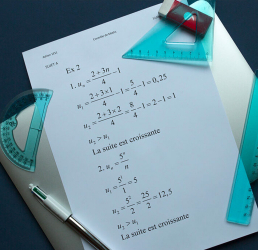 Ex 2
1. uₙ = (2+3n)/4 − 1
u₁ = (2+3×1)/4 − 1 = 5/4 − 1 = 0,25
u₂ = (2+3×2)/4 − 1 = 2 − 1 = 1
u₂ > u₁
La suite est croissante
2. uₙ = 5ⁿ/n
u₁ = 5¹/1 = 5
u₂ = 5²/2 = 25/2 = 12,5
u₂ > u₁
La suite est croissante